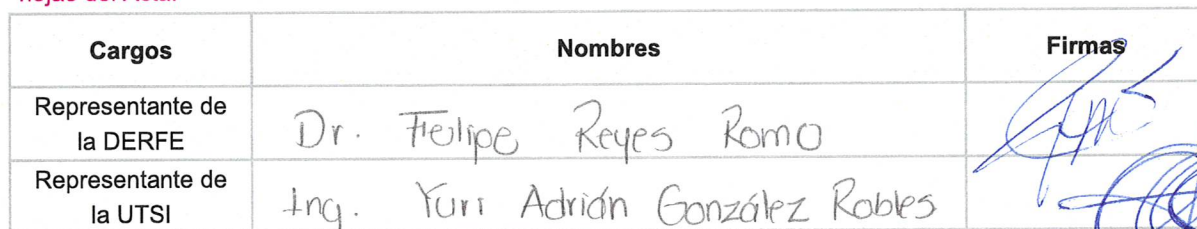 Cargos Nombres Firmas
Representante de
la DERFE
Dr. Felipe Reyes Romo
Representante de
la UTSI
Ing. Yuri Adrián González Robles